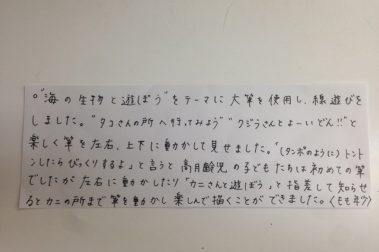 ○"海の生物と遊ぼう"をテーマに大筆を使用し、線遊びを
しました。"タコさんの所へ行ってみよう""クジラさんとよーいどん!!"と
楽しく筆を左右、上下に動かして見せました。「(タンポのように)トント
ンしたらびっくりするよ」と言うと高月齢児の子どもたちは初めての筆
でしたが左右に動かしたり「カニさんと遊ぼう」と指差して知らせ
るとカニの所まで筆を動かし楽しんで描くことができました。(もも